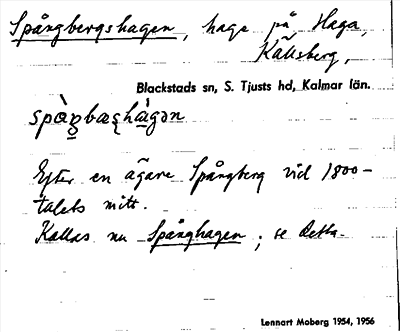 Spångbergshagen, hage på Haga,
Källsberg,
Blackstads sn, S. Tjusts hd, Kalmar län.
Efter en ägare Spångberg vid 1800-
talets mitt.
Kallas nu Spånghagen; se detta.
Lennart Moberg 1954, 1956